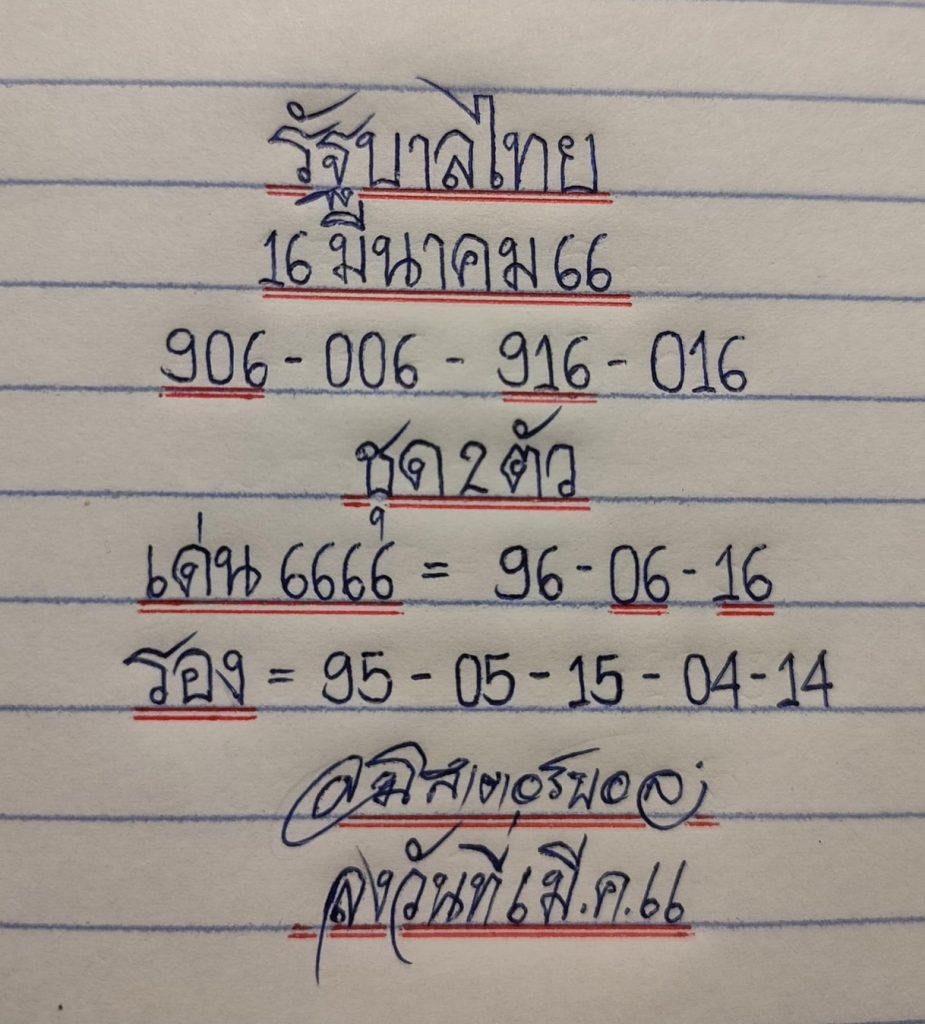 รัฐบาลไทย
16 มีนาคม 66
906 - 006 - 916 - 016
ชุด 2 ตัว
เด่น 6666 = 96 - 06 - 16
รอง = 95 - 05 - 15 - 04 - 14
ลงวันที่ 6 มี.ค. 66